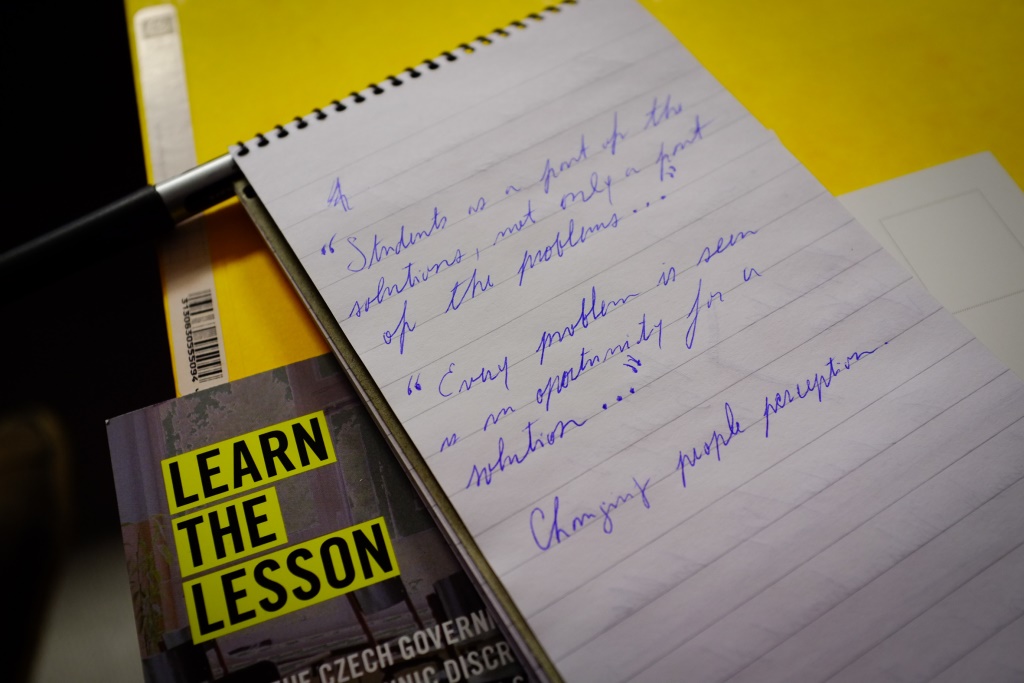 "Students is a part of the
solutions, not only a part
of the problems..."
"Every problem is seen
is an oportunity for a
solution..."
Changing people perception.
LEARN
THE
LESSON
THE CZECH GOVERN
NIC DISCR
3130630555034